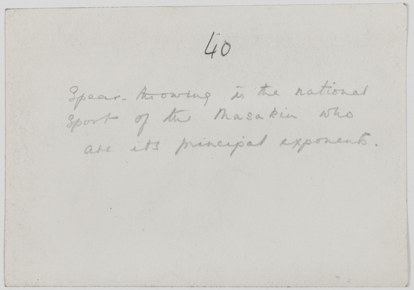 40
Spear-throwing is the national
sport of the Masakin who
are its principal exponents.